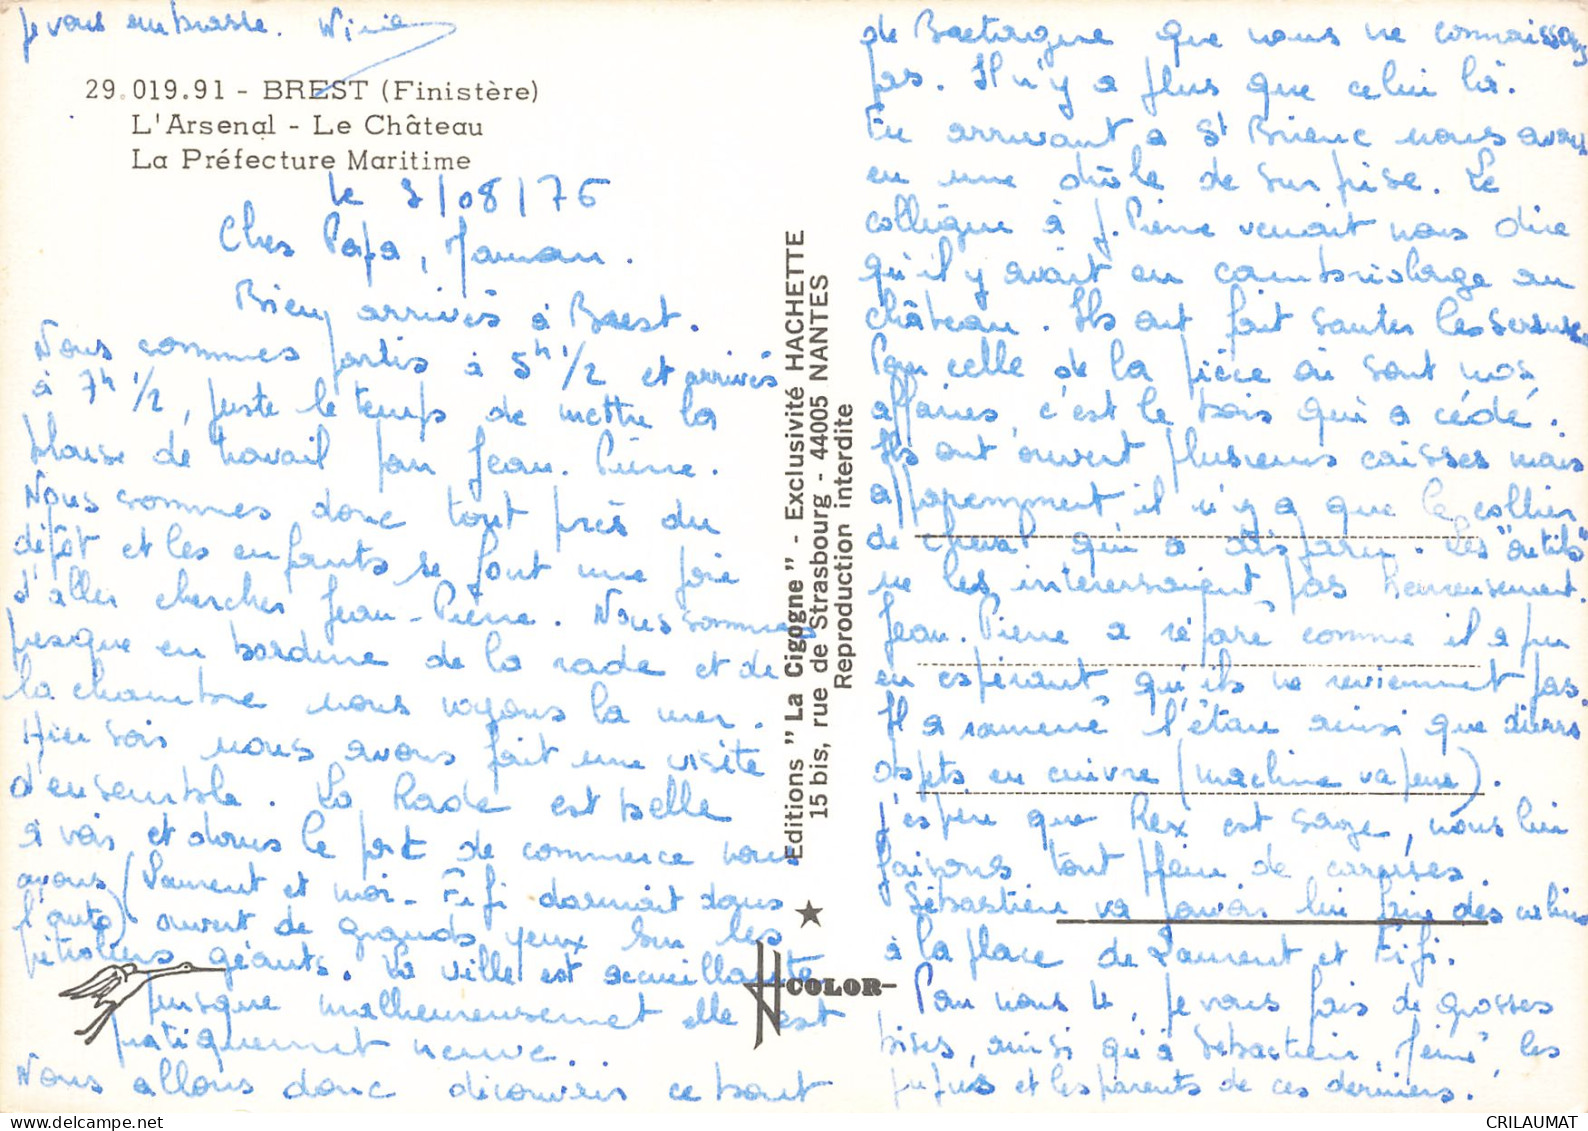 je vous embrasse.
29.019.91 - BREST (Finistère)
L'Arsenal - Le Château
La Préfecture Maritime
le 3/08/76
Chers Papa, Maman.
Bien arrivés à Brest.
Nous sommes partis à 5h 1/2 et arrivés
à 7h 1/2, juste le temps de mettre la
blouse de travail pour Jean-Pierre.
Nous sommes donc tout près du
dépôt et les enfants se font une joie
d'aller chercher Jean-Pierre. Nous sommes
presque en bordure de la rade et de
la chambre nous voyons la mer.
Hier soir nous avons fait une visite
d'ensemble. La Rade est belle
à voir et dans le port de commerce nous
avons (Laurent et moi - Fifi dormait dans
l'auto) ouvert de grands yeux sur les
pétroliers géants. La ville est accueillante
puisque malheureusement elle est
pratiquement neuve...
Nous allons donc découvrir ce bout
de Bretagne que nous ne connaissons
pas. Il n'y a plus que celui là.
En arrivant à St Brieuc nous avons
eu une drôle de surprise. Le
collègue à J. Pierre venait nous dire
qu'il y avait eu cambriolage au
château. Ils ont fait sauter les serrures
Pour celle de la pièce où sont nos
affaires, c'est le bois qui a cédé.
Ils ont ouvert plusieurs caisses mais
apparemment il n'y a que le collier
de cheval qui a disparu. Les "outils"
ne les intéressaient pas heureusement.
Jean-Pierre a réparé comme il a pu
en espérant qu'ils ne reviennent pas.
Il a ramené l'étau ainsi que divers
objets en cuivre (machine vapeur).
J'espère que Rex est sage, nous lui
faisons tout plein de caresses.
Sébastien va pouvoir lui faire des câlins
à la place de Laurent et Fifi.
Pour nous 4, je vous fais de grosses
bises, ainsi qu'à Sébastien, Mémé, les
et les parents de ces derniers.
Editions "La Cigogne" - Exclusivité HACHETTE
15 bis, rue de Strasbourg - 44005 NANTES
Reproduction interdite
COLOR
CRILAUMAT